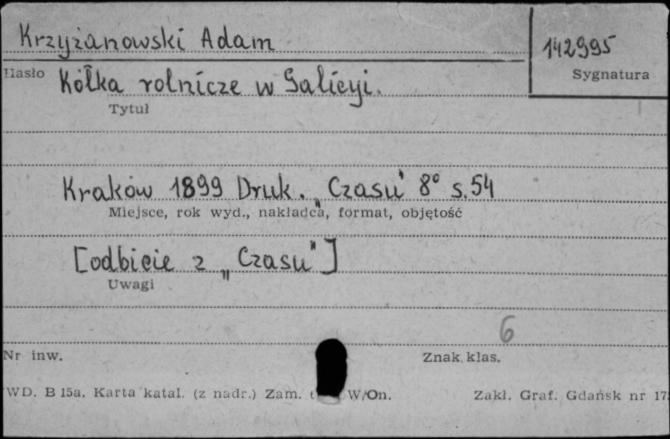 Krzyżanowski Adam
142995
Hasło
Sygnatura
Kółka rolnicze w Galicyi.
Tytuł
Kraków 1899 Druk. „Czasu" 8° s. 54
Miejsce, rok wyd., nakładca, format, objętość
[odbicie z „Czasu"]
Uwagi
6
Nr inw.
Znak klas.
WD. B 15a. Karta katal. (z nadr.) Zam. W/On.
Zakł. Graf. Gdańsk nr 17